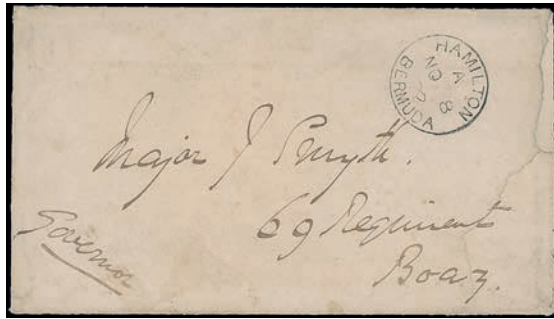 HAMILTON
A
NO 8
BERMUDA
Major J Smyth.
69 Regiment
Boaz.
Governor